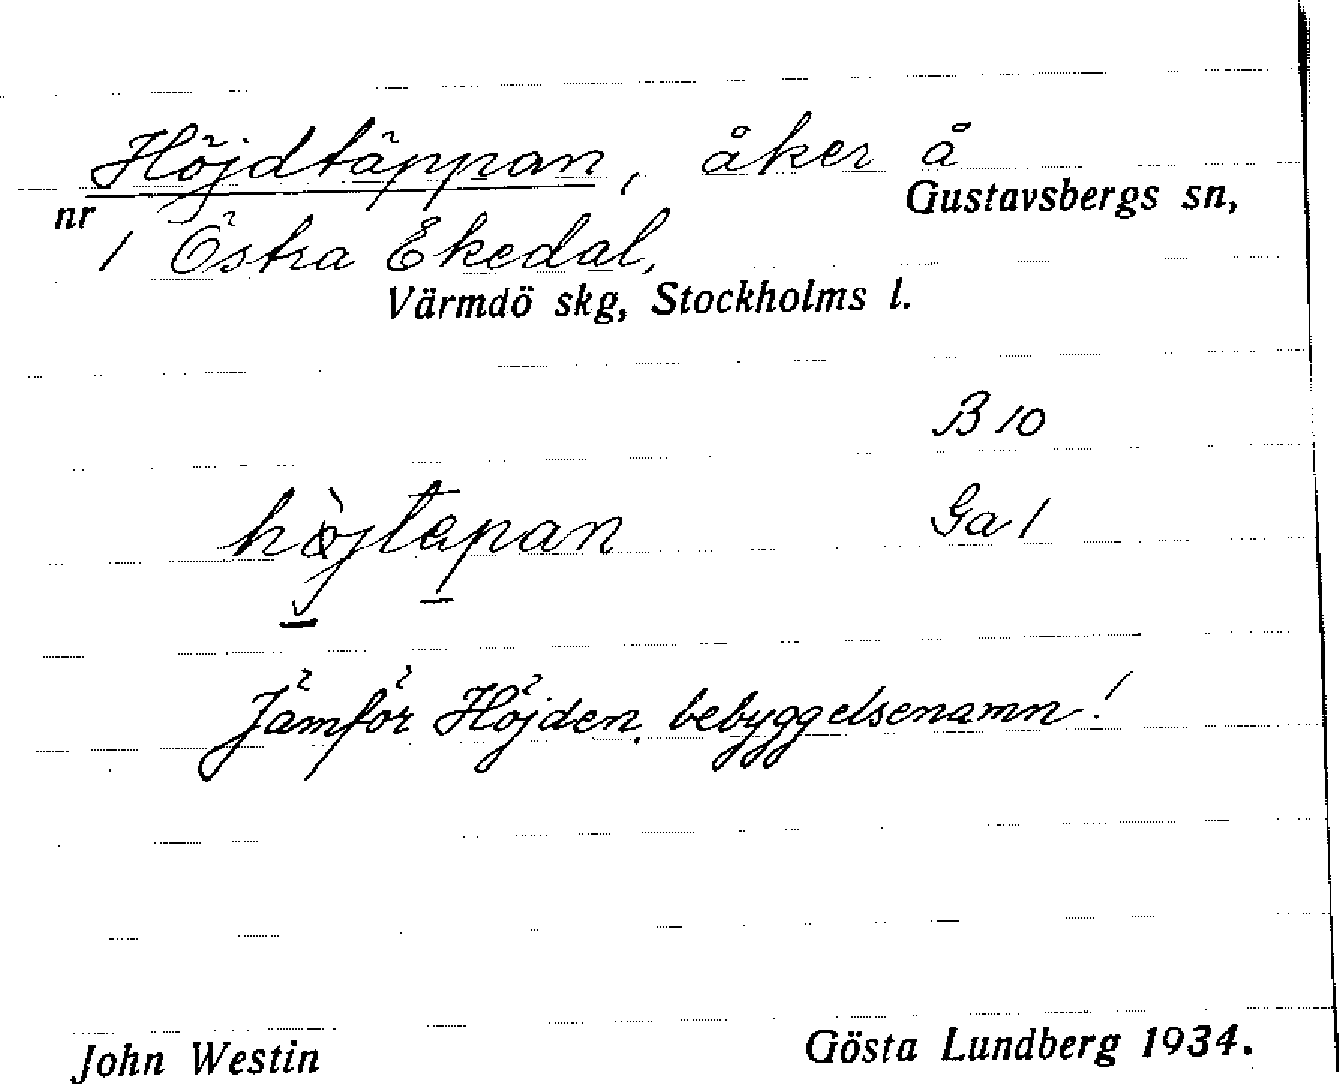 Höjdtäppan, åker å
Gustavsbergs sn,
nr
1 Östra Ekedal,
Värmdö skg, Stockholms l.
B 10
höjtäpan Ga 1
Jämför Höjden, bebyggelsenamn!
John Westin Gösta Lundberg 1934.